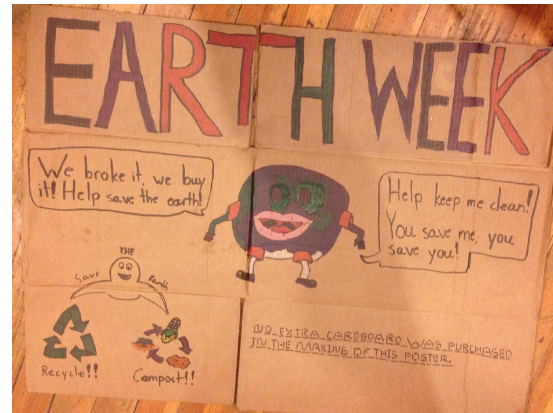 EARTH WEEK
We broke it, we buy
it! Help save the earth!
Help keep me clean!
You save me, you
save you!
Save THE Earth
Recycle!!
Compost!!
NO EXTRA CARDBOARD WAS PURCHASED
IN THE MAKING OF THIS POSTER.